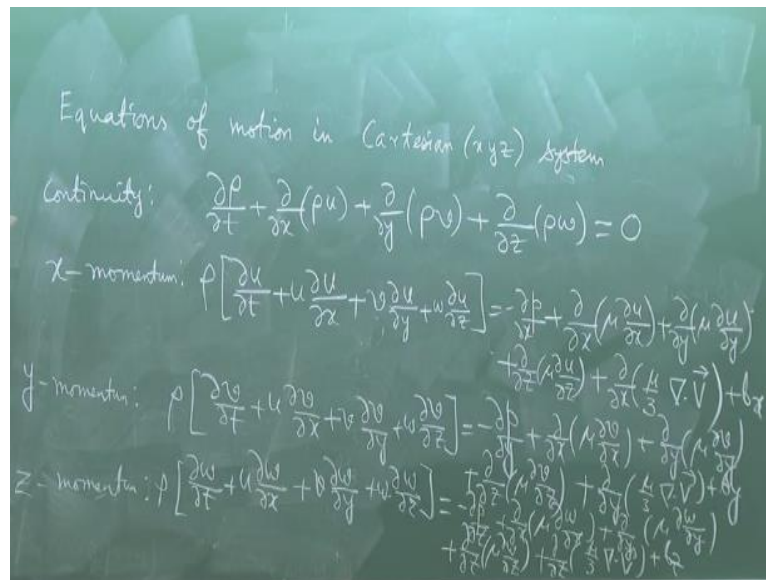 Equations of motion in Cartesian (xyz) system
Continuity: ∂ρ/∂t + ∂/∂x(ρu) + ∂/∂y(ρv) + ∂/∂z(ρw) = 0
x-momentum: ρ[∂u/∂t + u ∂u/∂x + v ∂u/∂y + w ∂u/∂z] = -∂p/∂x + ∂/∂x(μ ∂u/∂x) + ∂/∂y(μ ∂u/∂y)
+ ∂/∂z(μ ∂u/∂z) + ∂/∂x(μ/3 ∇.V⃗) + b_x
y-momentum: ρ[∂v/∂t + u ∂v/∂x + v ∂v/∂y + w ∂v/∂z] = -∂p/∂y + ∂/∂x(μ ∂v/∂x) + ∂/∂y(μ ∂v/∂y)
+ ∂/∂z(μ ∂v/∂z) + ∂/∂y(μ/3 ∇.V⃗) + b_y
z-momentum: ρ[∂w/∂t + u ∂w/∂x + v ∂w/∂y + w ∂w/∂z] = -∂p/∂z + ∂/∂x(μ ∂w/∂x) + ∂/∂y(μ ∂w/∂y)
+ ∂/∂z(μ ∂w/∂z) + ∂/∂z(μ/3 ∇.V⃗) + b_z